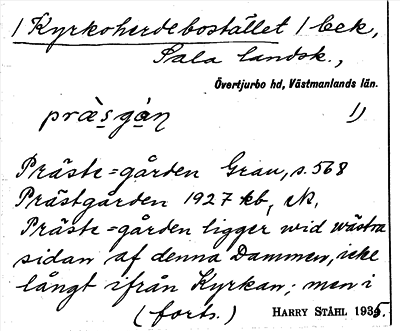 / Kyrkoherdebostället / bek,
Sala landsk.,
Övertjurbo hd, Västmanlands län.
prä̀s̩gà̩n 1)
Präste=gården Grau, s. 568
Prästgården 1927 kb,
Präste=gården ligger wid wästra
sidan af denna Dammen, icke
långt ifrån Kyrkan; men i
(forts.) HARRY STÅHL 1935.